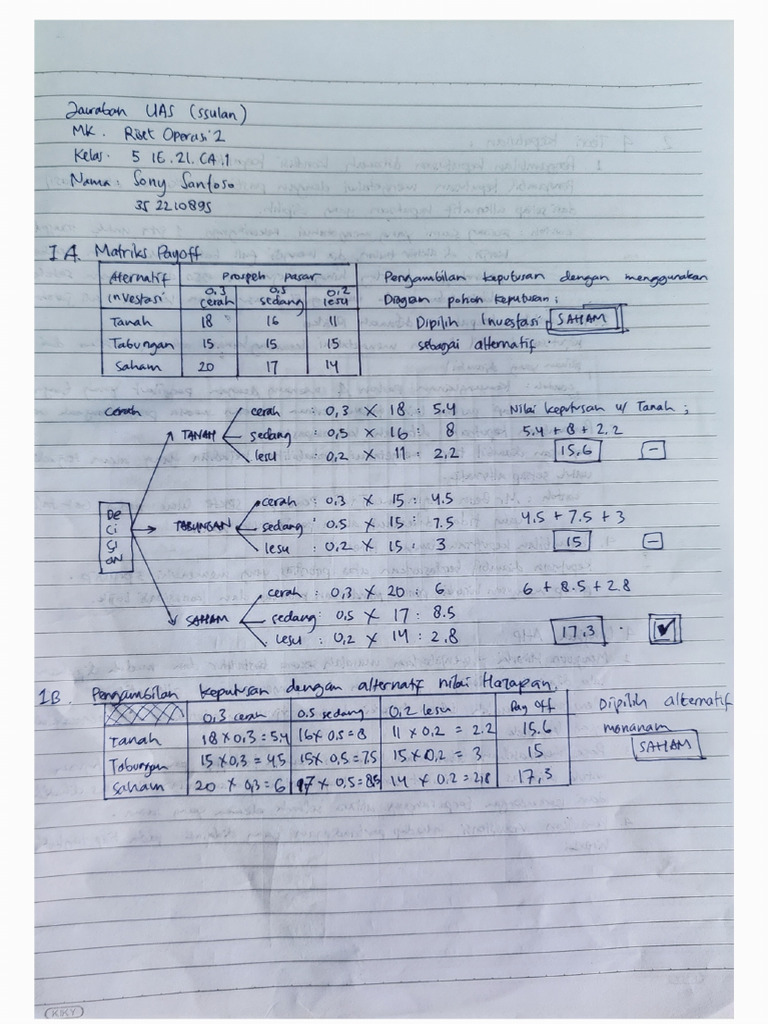 Jawaban UAS (susulan)
MK. Riset Operasi 2
Kelas. 5 IE. 21. CA.1
Nama: Sony Santoso
35 2210895
1A. Matriks Payoff
Aternatif Prospek pasar
investasi 0,3 cerah 0,5 sedang 0,2 lesu
Tanah 18 16 11
Tabungan 15 15 15
Saham 20 17 14
Pengambilan keputusan dengan menggunakan
Diagram pohon keputusan;
Dipilih Investasi SAHAM
sebagai alternatif.
cerah
DeCiSiON
TANAH
cerah : 0,3 X 18 : 5.4
sedang : 0,5 X 16 : 8
lesu : 0,2 X 11 : 2,2
Nilai keputusan u/ Tanah ;
5.4 + 8 + 2.2
15,6 –
TABUNGAN
cerah : 0,3 X 15 : 4.5
sedang : 0.5 X 15 : 7.5
lesu : 0,2 X 15 : 3
4.5 + 7.5 + 3
15 –
SAHAM
cerah : 0,3 X 20 : 6
sedang : 0,5 X 17 : 8.5
lesu : 0,2 X 14 : 2.8
6 + 8.5 + 2.8
17,3 ✓
1B. Pengambilan keputusan dengan alternatif nilai Harapan.
0,3 cerah 0.5 sedang 0,2 lesu Pay off
Tanah 18 x 0,3 = 5,4 16 x 0,5 = 8 11 x 0,2 = 2.2 15.6
Tabungan 15 x 0,3 = 4,5 15 x 0,5 = 7,5 15 x 0,2 = 3 15
Saham 20 x 0,3 = 6 17 x 0,5 = 8,5 14 x 0.2 = 2,8 17,3
Dipilih alternatif
menanam
SAHAM
KIKY